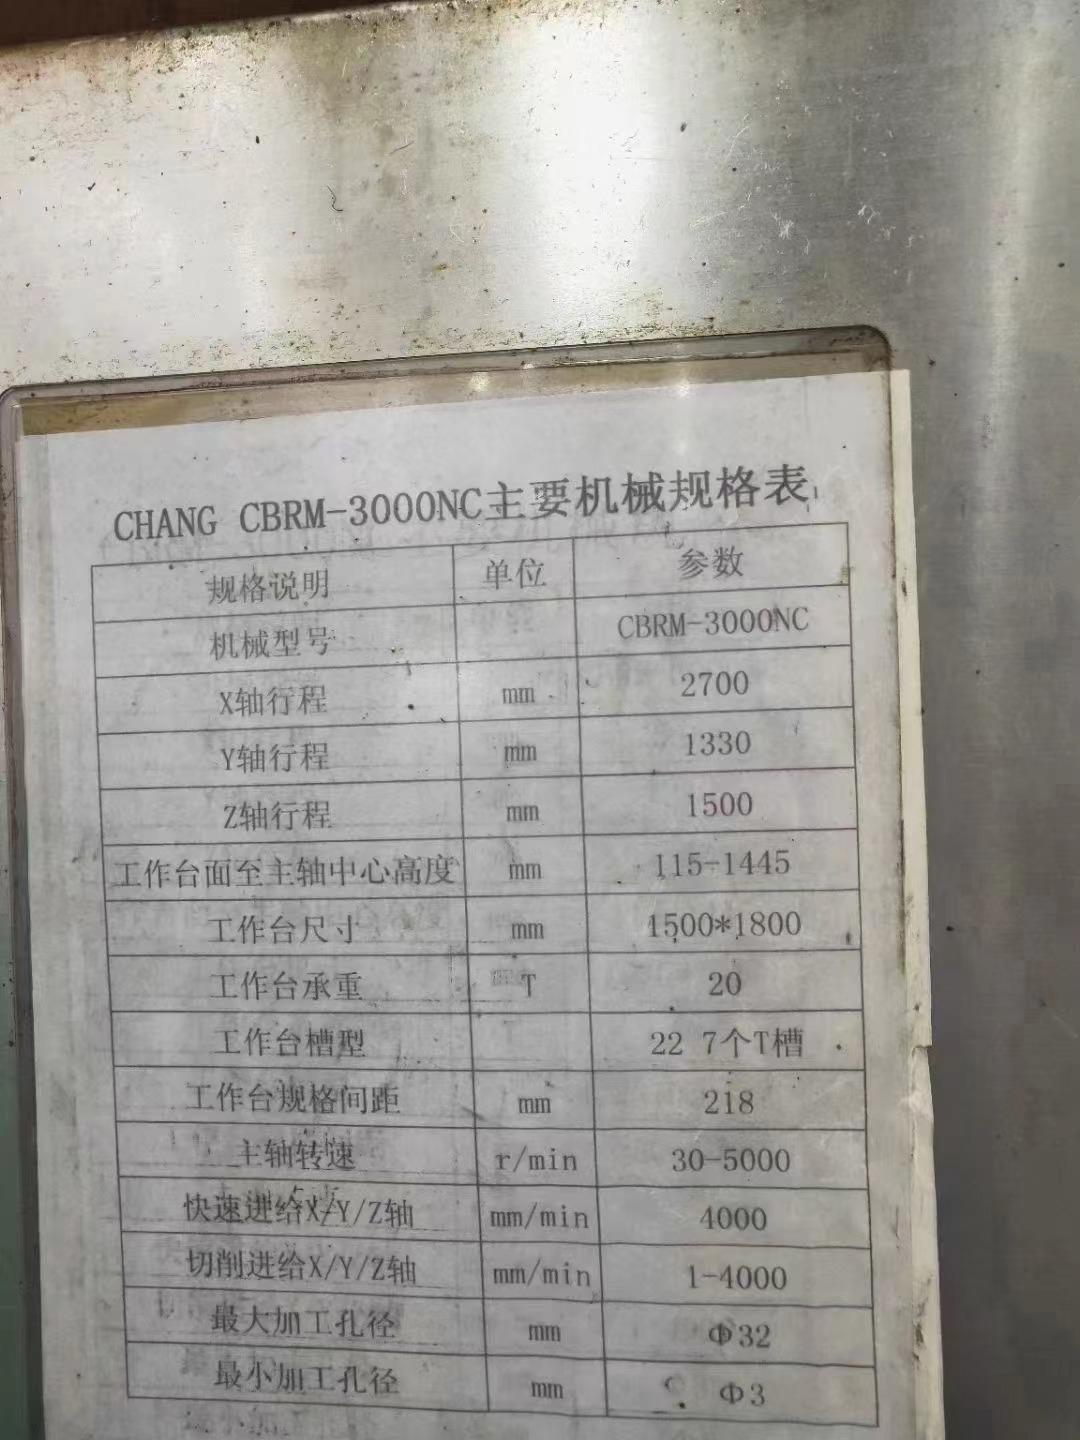 CHANG CBRM-3000NC主要机械规格表
规格说明 单位 参数
机械型号 CBRM-3000NC
X轴行程 mm 2700
Y轴行程 mm 1330
Z轴行程 mm 1500
工作台面至主轴中心高度 mm 115-1445
工作台尺寸 mm 1500*1800
工作台承重 T 20
工作台槽型 22 7个T槽
工作台规格间距 mm 218
主轴转速 r/min 30-5000
快速进给X/Y/Z轴 mm/min 4000
切削进给X/Y/Z轴 mm/min 1-4000
最大加工孔径 mm Φ32
最小加工孔径 mm Φ3